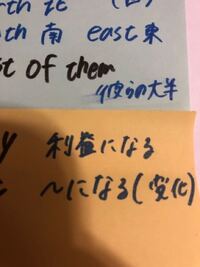 th 北
th 南 east 東
st of them
彼らの大半
y 利益になる
〜になる(変化)